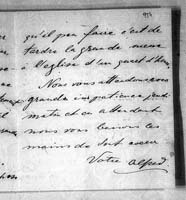 qu'il peu faire c'est de
perdre la grande messe
à l'église d'un quart d'heure
Nous vous attendons avec
grande impatience
matin et en attendant
nous vous baisons les
mains de tout coeur
Votre Alfred